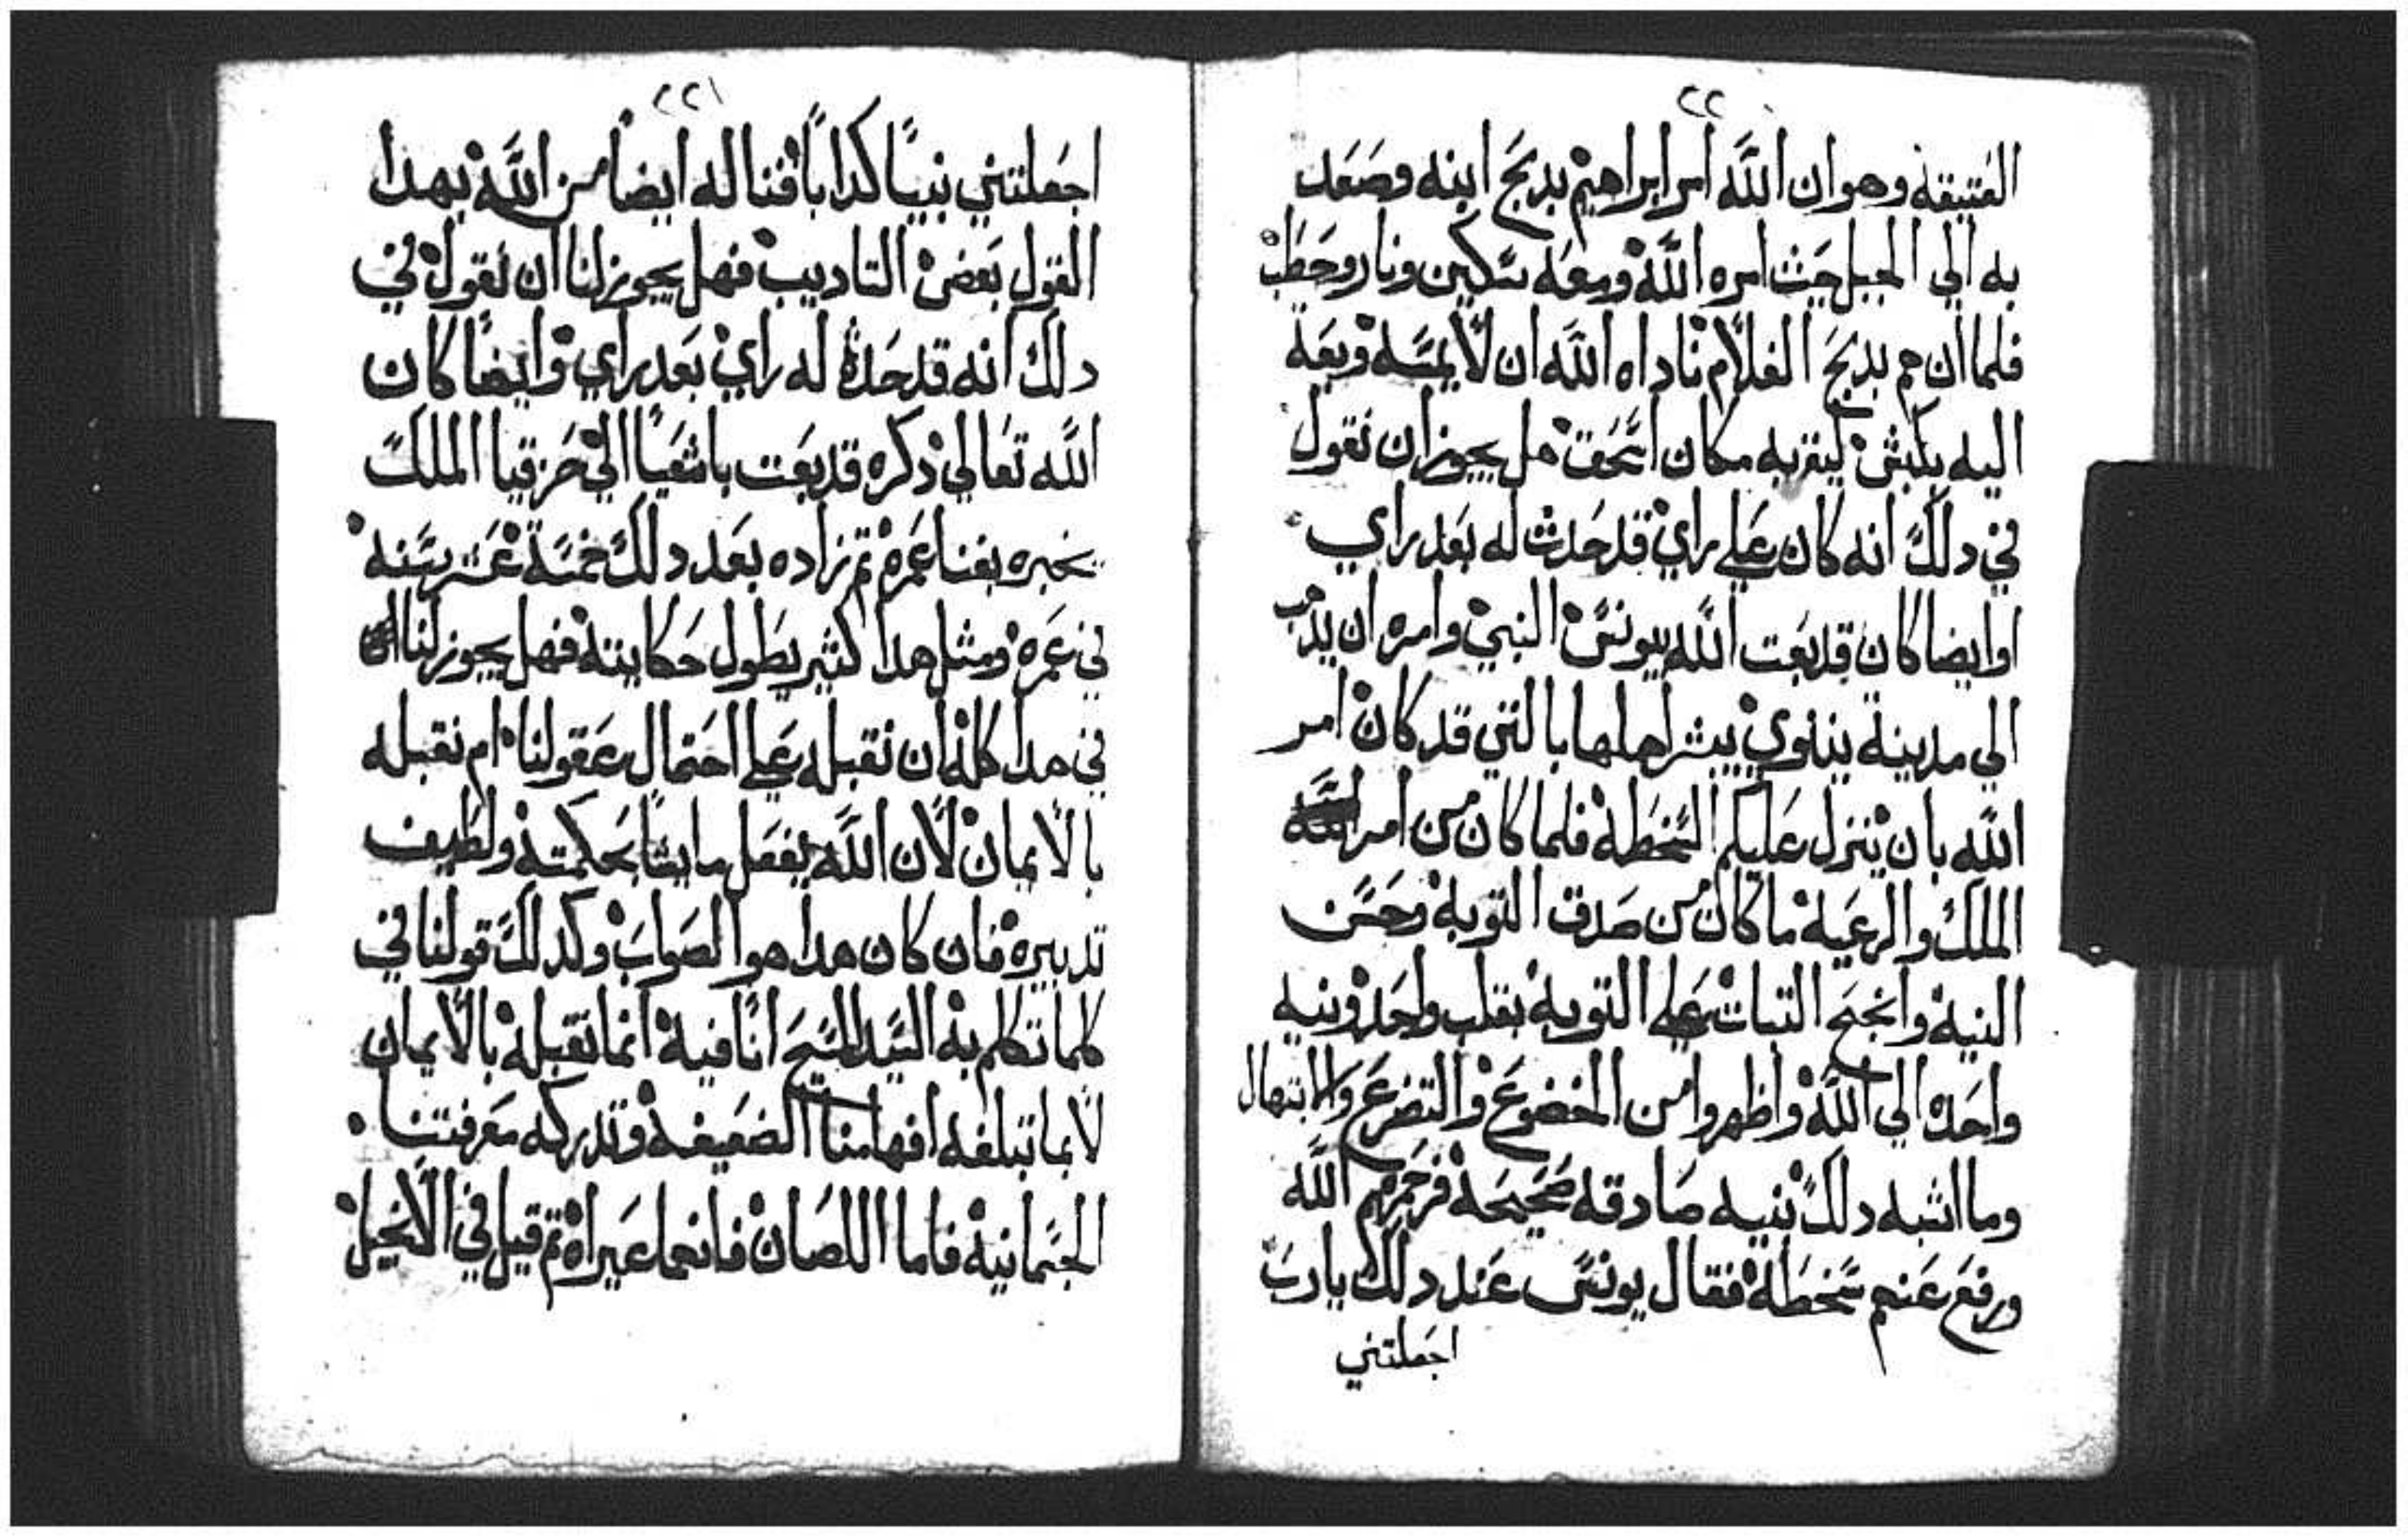 ٢٢
العتيقه وهو ان اللّه امر ابراهيم بدبح ابنه وصعد
به الي الجبل حيث امره اللّه ومعه سكين ونار وحطب
فلما ان هم بدبح الغلام ناداه اللّه ان لا يمسه وبعة
اليه بكبش ليقربه مكان اسحق هل يجوز ان نقول
في دلك انه كان علي راي قد حدث له بعد راي
اوايضا كان قد بعت اللّه بيونس النبي وامره ان يدهب
الى مدينة نينوي يبشر اهلها بالتي قد كان امر
اللّه بان ينزل عليكم السخطه فلما كان من امر
الملك والرعيه ما كان من صدق التوبه وحسن
النيه وانجح التبات علي التوبه بقلب واحد ونيه
واحده الي اللّه واظهروا من الخضوع والتضرع والابتهال
وما اشبه دلك بنيه صادقه صحيحه فرحمهم اللّه
ورفع عنهم سخطه فقال يونس عند دلك يارب
اجعلتني
٢٢١
اجعلتني نبياً كداباً فنا له ايضاً من اللّه بهدا
القول بعض التاديب فهل يجوز لنا ان نقول في
دلك انه قد حدث له راي بعد راي وايضاً كان
اللّه تعالي دكره قد بعت باشعيا الي حزقيا الملك
يخبره بفنا عمره تم زاده بعد دلك خمسة عشر سنه
في عمره ومثل هدا كثير يطول حكايته فهل يجوز لنا
في هدا كله ان نقبله علي احتمال عقولنا ام نقبله
بالايمان لان اللّه يفعل ما يشا بحكمته ولطيف
تدبيره فان كان هدا هو الصواب وكدلك قولنا في
كلما تكلم به السيد المسيح انا فيه انما نقبله بالايمان
لا بما تبلغه افهامنا الضعيفه وتدركه معرفتنا
الجسمانيه فاما اللصان فانهما عيراه تم قيل في الانجيل